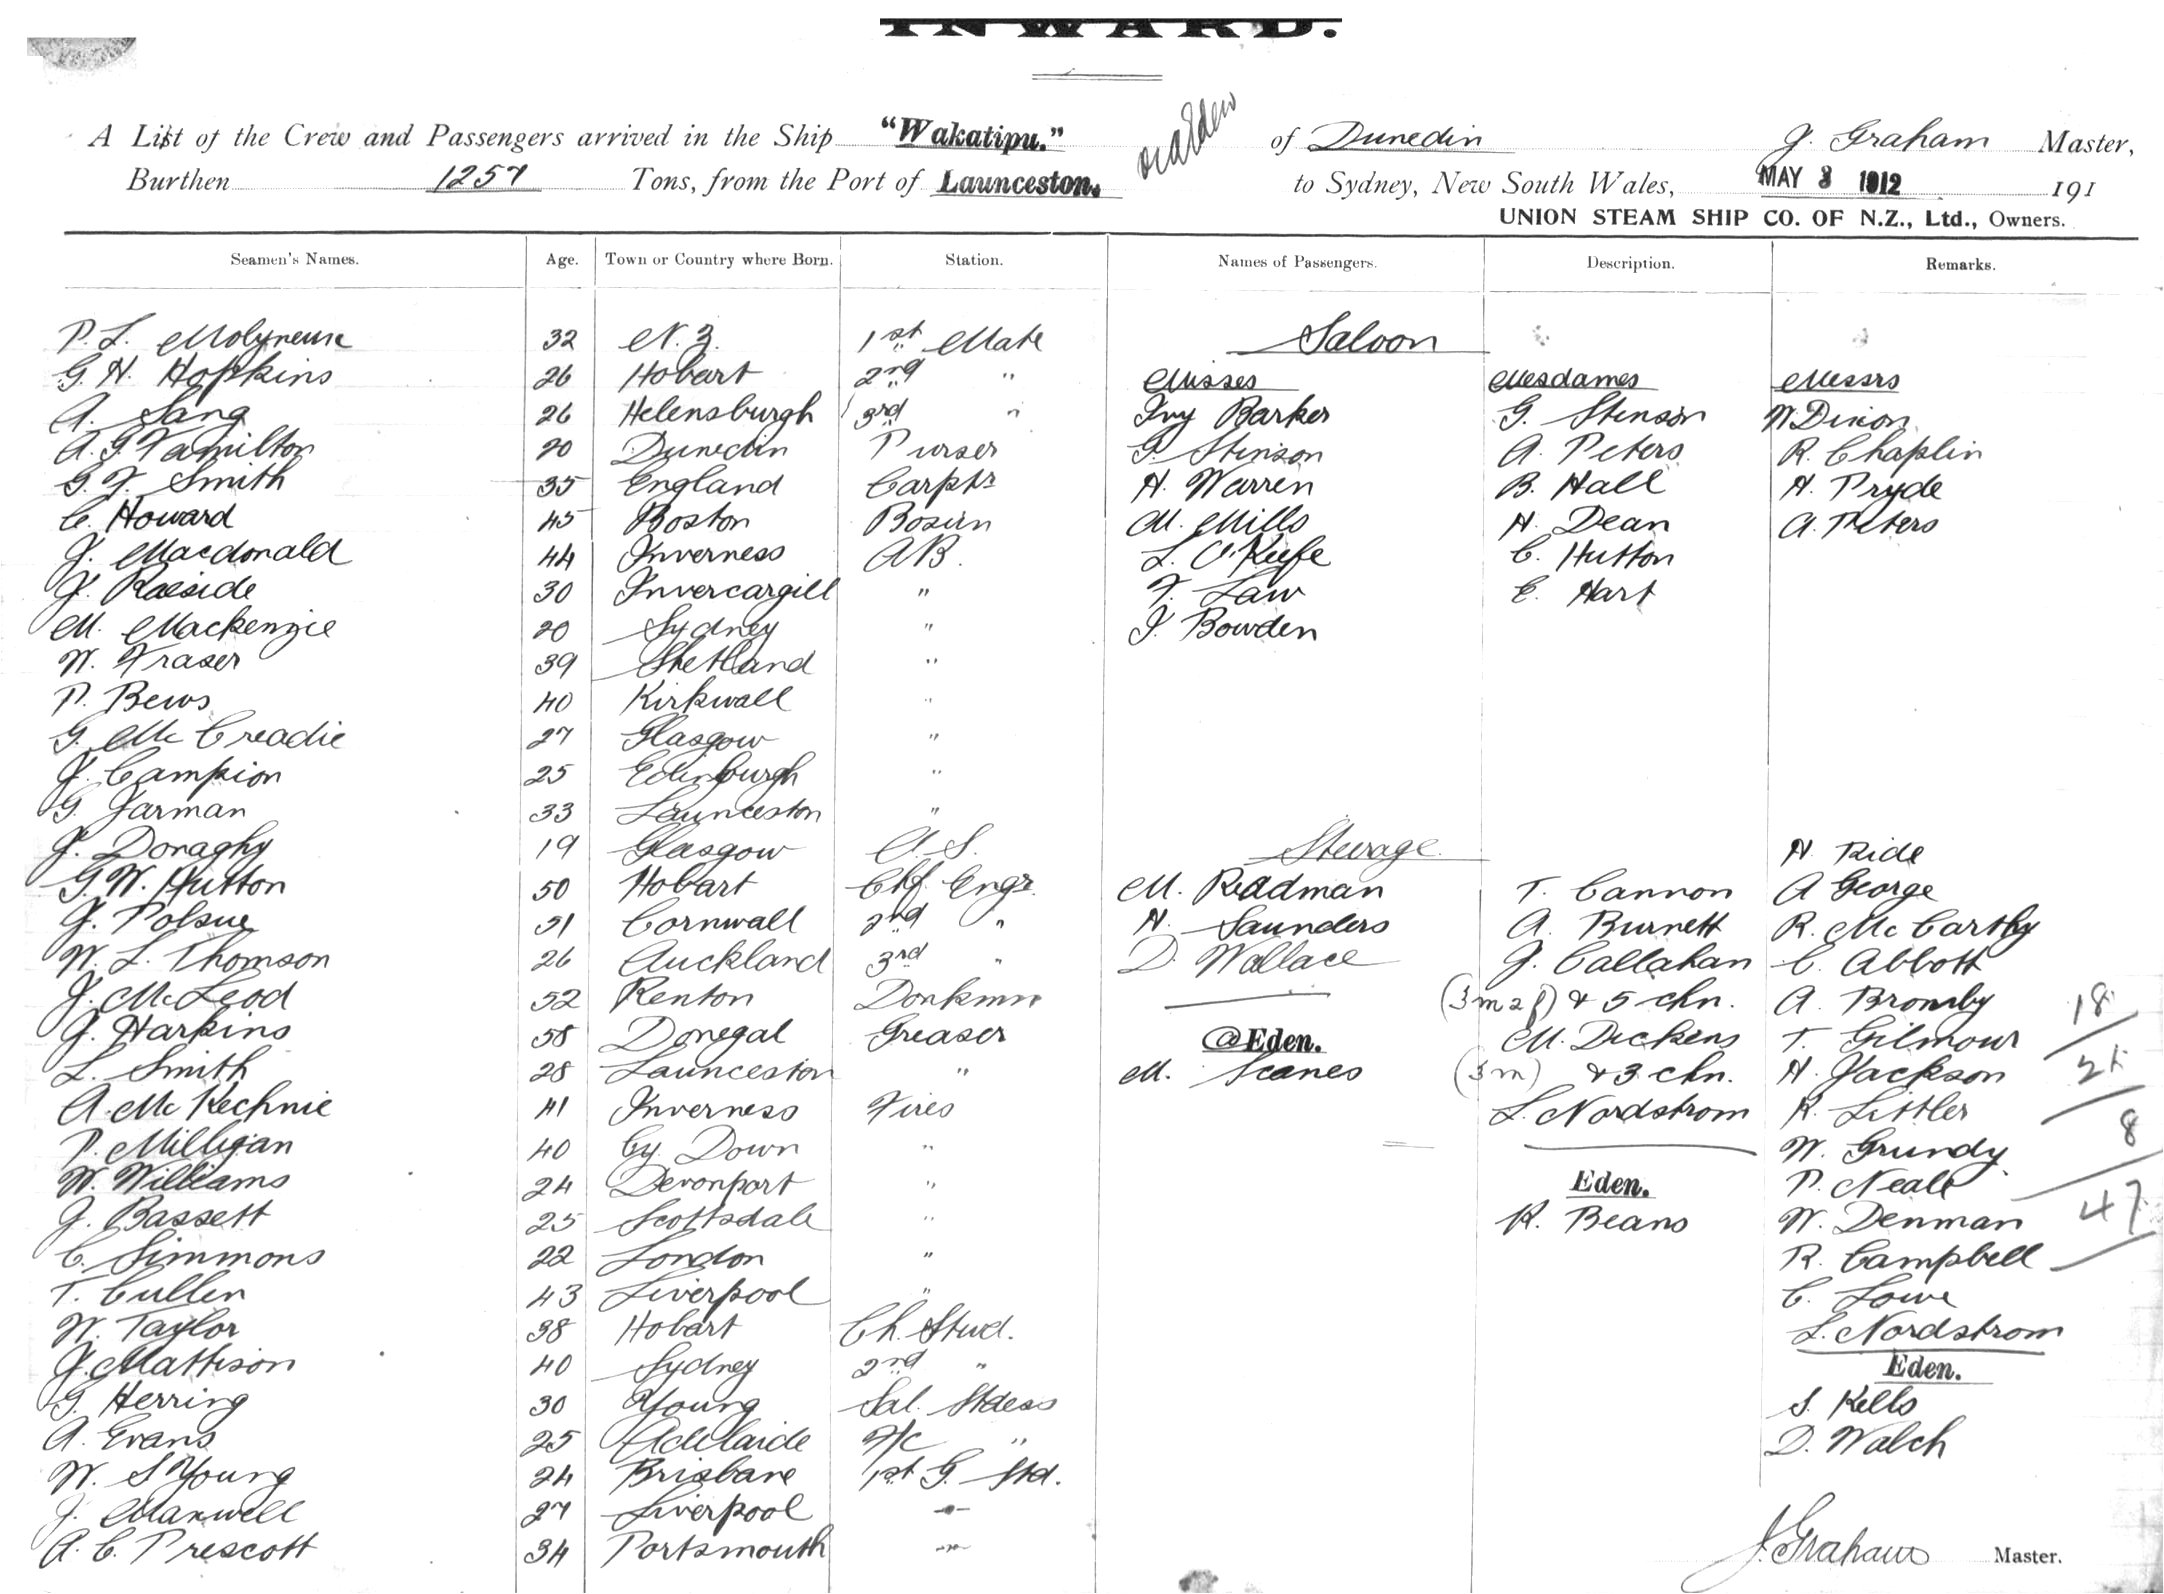 INWARD.
A List of the Crew and Passengers arrived in the Ship "Wakatipu." via Eden of Dunedin J. Graham Master,
Burthen 1257 Tons, from the Port of Launceston. to Sydney, New South Wales, MAY 8 1912 191
UNION STEAM SHIP CO. OF N.Z., Ltd., Owners.
Seamen's Names. Age. Town or Country where Born. Station. Names of Passengers. Description. Remarks.
P. L. Molyneux 32 N. Z. 1st Mate Saloon
G. H. Hopkins 26 Hobart 2nd " Misses Mesdames Messrs
A. Sang 26 Helensburgh 3rd " Ivy Barker G. Stenson W Dixon
A. G. Hamilton 20 Dunedin Purser G. Stenson A. Peters R. Chaplin
G. F. Smith 35 England Carptr H. Warren B. Hall H. Pryde
C. Howard 45 Boston Bosun M. Mills H. Dean A. Peters
J. Macdonald 44 Inverness AB. L. O'Keefe C. Hutton
J. Raeside 30 Invercargill " F. Law E. Hart
M. Mackenzie 20 Sydney " I. Bowden
W. Fraser 39 Shetland "
P. Bews 40 Kirkwall "
G. McCreadie 27 Glasgow "
J. Campion 25 Edinburgh "
G. Jarman 33 Launceston "
J. Donaghy 19 Glasgow O. S. Steerage H. Ride
G. W. Hutton 50 Hobart Chf. Engr. M. Readman T. Cannon A George
J. Polsue 51 Cornwall 2nd " H. Saunders A. Burnett R. McCarthy
W. L. Thomson 26 Auckland 3rd " D. Wallace J. Callahan C. Abbott
J. McLeod 52 Renton Donkmn (3m 2f) & 5 chn. A. Bromby 18
J. Harkins 58 Donegal Greaser @Eden. M. Dickens T. Gilmour
L. Smith 28 Launceston " M. Scanes (3m) & 3 chn. H. Jackson 21
A. McKechnie 41 Inverness Fires L. Nordstrom R. Littler
P. Milligan 40 Cy. Down " W. Grundy 8
W. Williams 24 Devonport " Eden. P. Neale
J. Bassett 25 Scottsdale " R. Beans W. Denman 47
C. Simmons 22 London " R. Campbell
T. Cullen 43 Liverpool " C. Lowe
W. Taylor 38 Hobart Ch. Stwd. L. Nordstrom
J. Mattison 40 Sydney 2nd " Eden.
G. Herring 30 Young Sal. Stdess S. Kells
A. Evans 25 Adelaide F/c " D. Walch
W. S Young 24 Brisbane 1st G. Std.
J. Maxwell 27 Liverpool -"-
A. C. Prescott 34 Portsmouth -"- J. Graham Master.